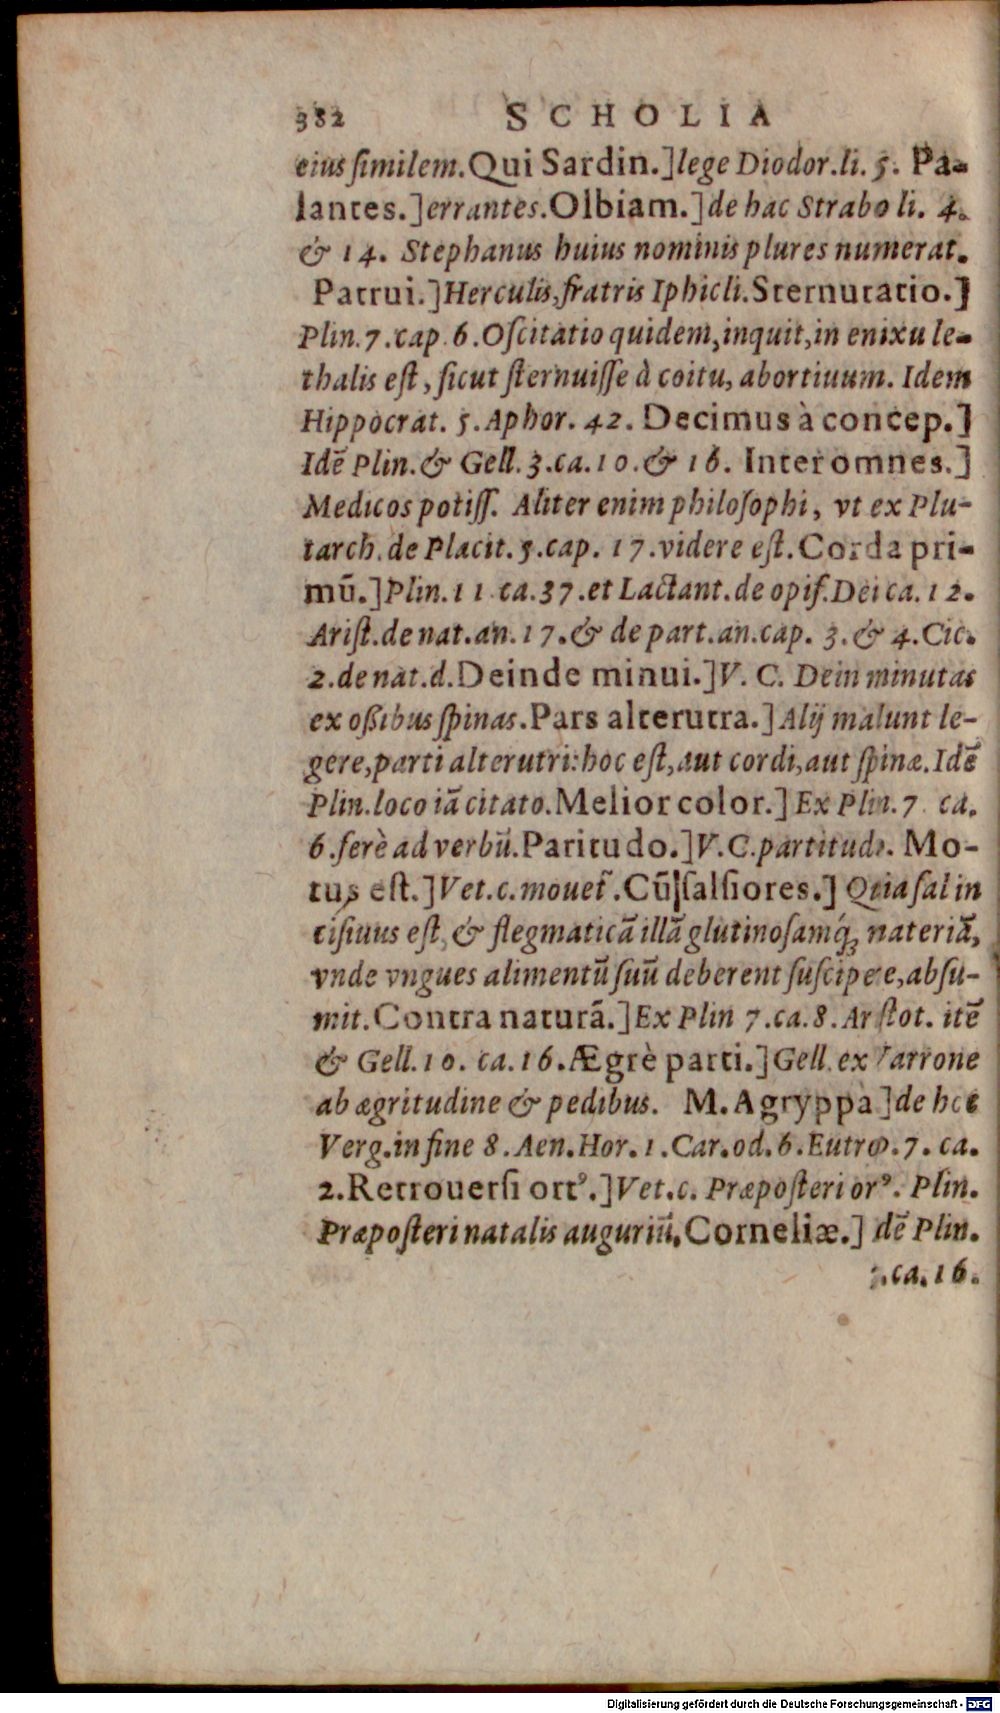 382 SCHOLIA
eius ſimilem. Qui Sardin.] lege Diodor. li. 5. Pa-
lantes.] errantes. Olbiam.] de hac Strabo li. 4.
& 14. Stephanus huius nominis plures numerat.
Patrui.] Herculis, fratris Iphicli. Sternutatio.]
Plin. 7. cap. 6. Oſcitatio quidem, inquit, in enixu le-
thalis eſt, ſicut ſternuiſſe à coitu, abortiuum. Idem
Hippocrat. 5. Aphor. 42. Decimus à concep.]
Idē Plin. & Gell. 3. ca. 10. & 16. Inter omnes.]
Medicos potiſſ. Aliter enim philoſophi, vt ex Plu-
tarch. de Placit. 5. cap. 17. videre eſt. Corda pri-
mū.] Plin. 11 ca. 37. et Lactant. de opif. Dei ca. 12.
Ariſt. de nat. an. 17. & de part. an. cap. 3. & 4. Cic.
2. de nat. d. Deinde minui.] V. C. Dein minutas
ex oßibus ſpinas. Pars alterutra.] Alij malunt le-
gere, parti alterutri: hoc eſt, aut cordi, aut ſpinæ. Idē
Plin. loco iā citato. Melior color.] Ex Plin. 7 ca.
6. ferè ad verbū. Paritudo.] V. C. partitudo. Mo-
tus eſt.] Vet. c. mouet̃. Cū ſalſiores.] Quia ſal in
ciſiuus eſt, & flegmaticā illā glutinoſamq́ꝫ materiā,
vnde vngues alimentū ſuū deberent ſuſcipere, abſu-
mit. Contra naturā.] Ex Plin 7. ca. 8. Ariſtot. itē
& Gell. 10. ca. 16. Ægrè parti.] Gell. ex Varrone
ab ægritudine & pedibus. M. Agryppa] de hoc
Verg. in fine 8. Aen. Hor. 1. Car. od. 6. Eutrop. 7. ca.
2. Retrouerſi ortꝰ.] Vet. c. Præpoſteri orꝰ. Plin.
Præpoſteri natalis auguriū. Corneliæ.] dē Plin.
ca. 16.
Digitalisierung gefördert durch die Deutsche Forschungsgemeinschaft - DFG